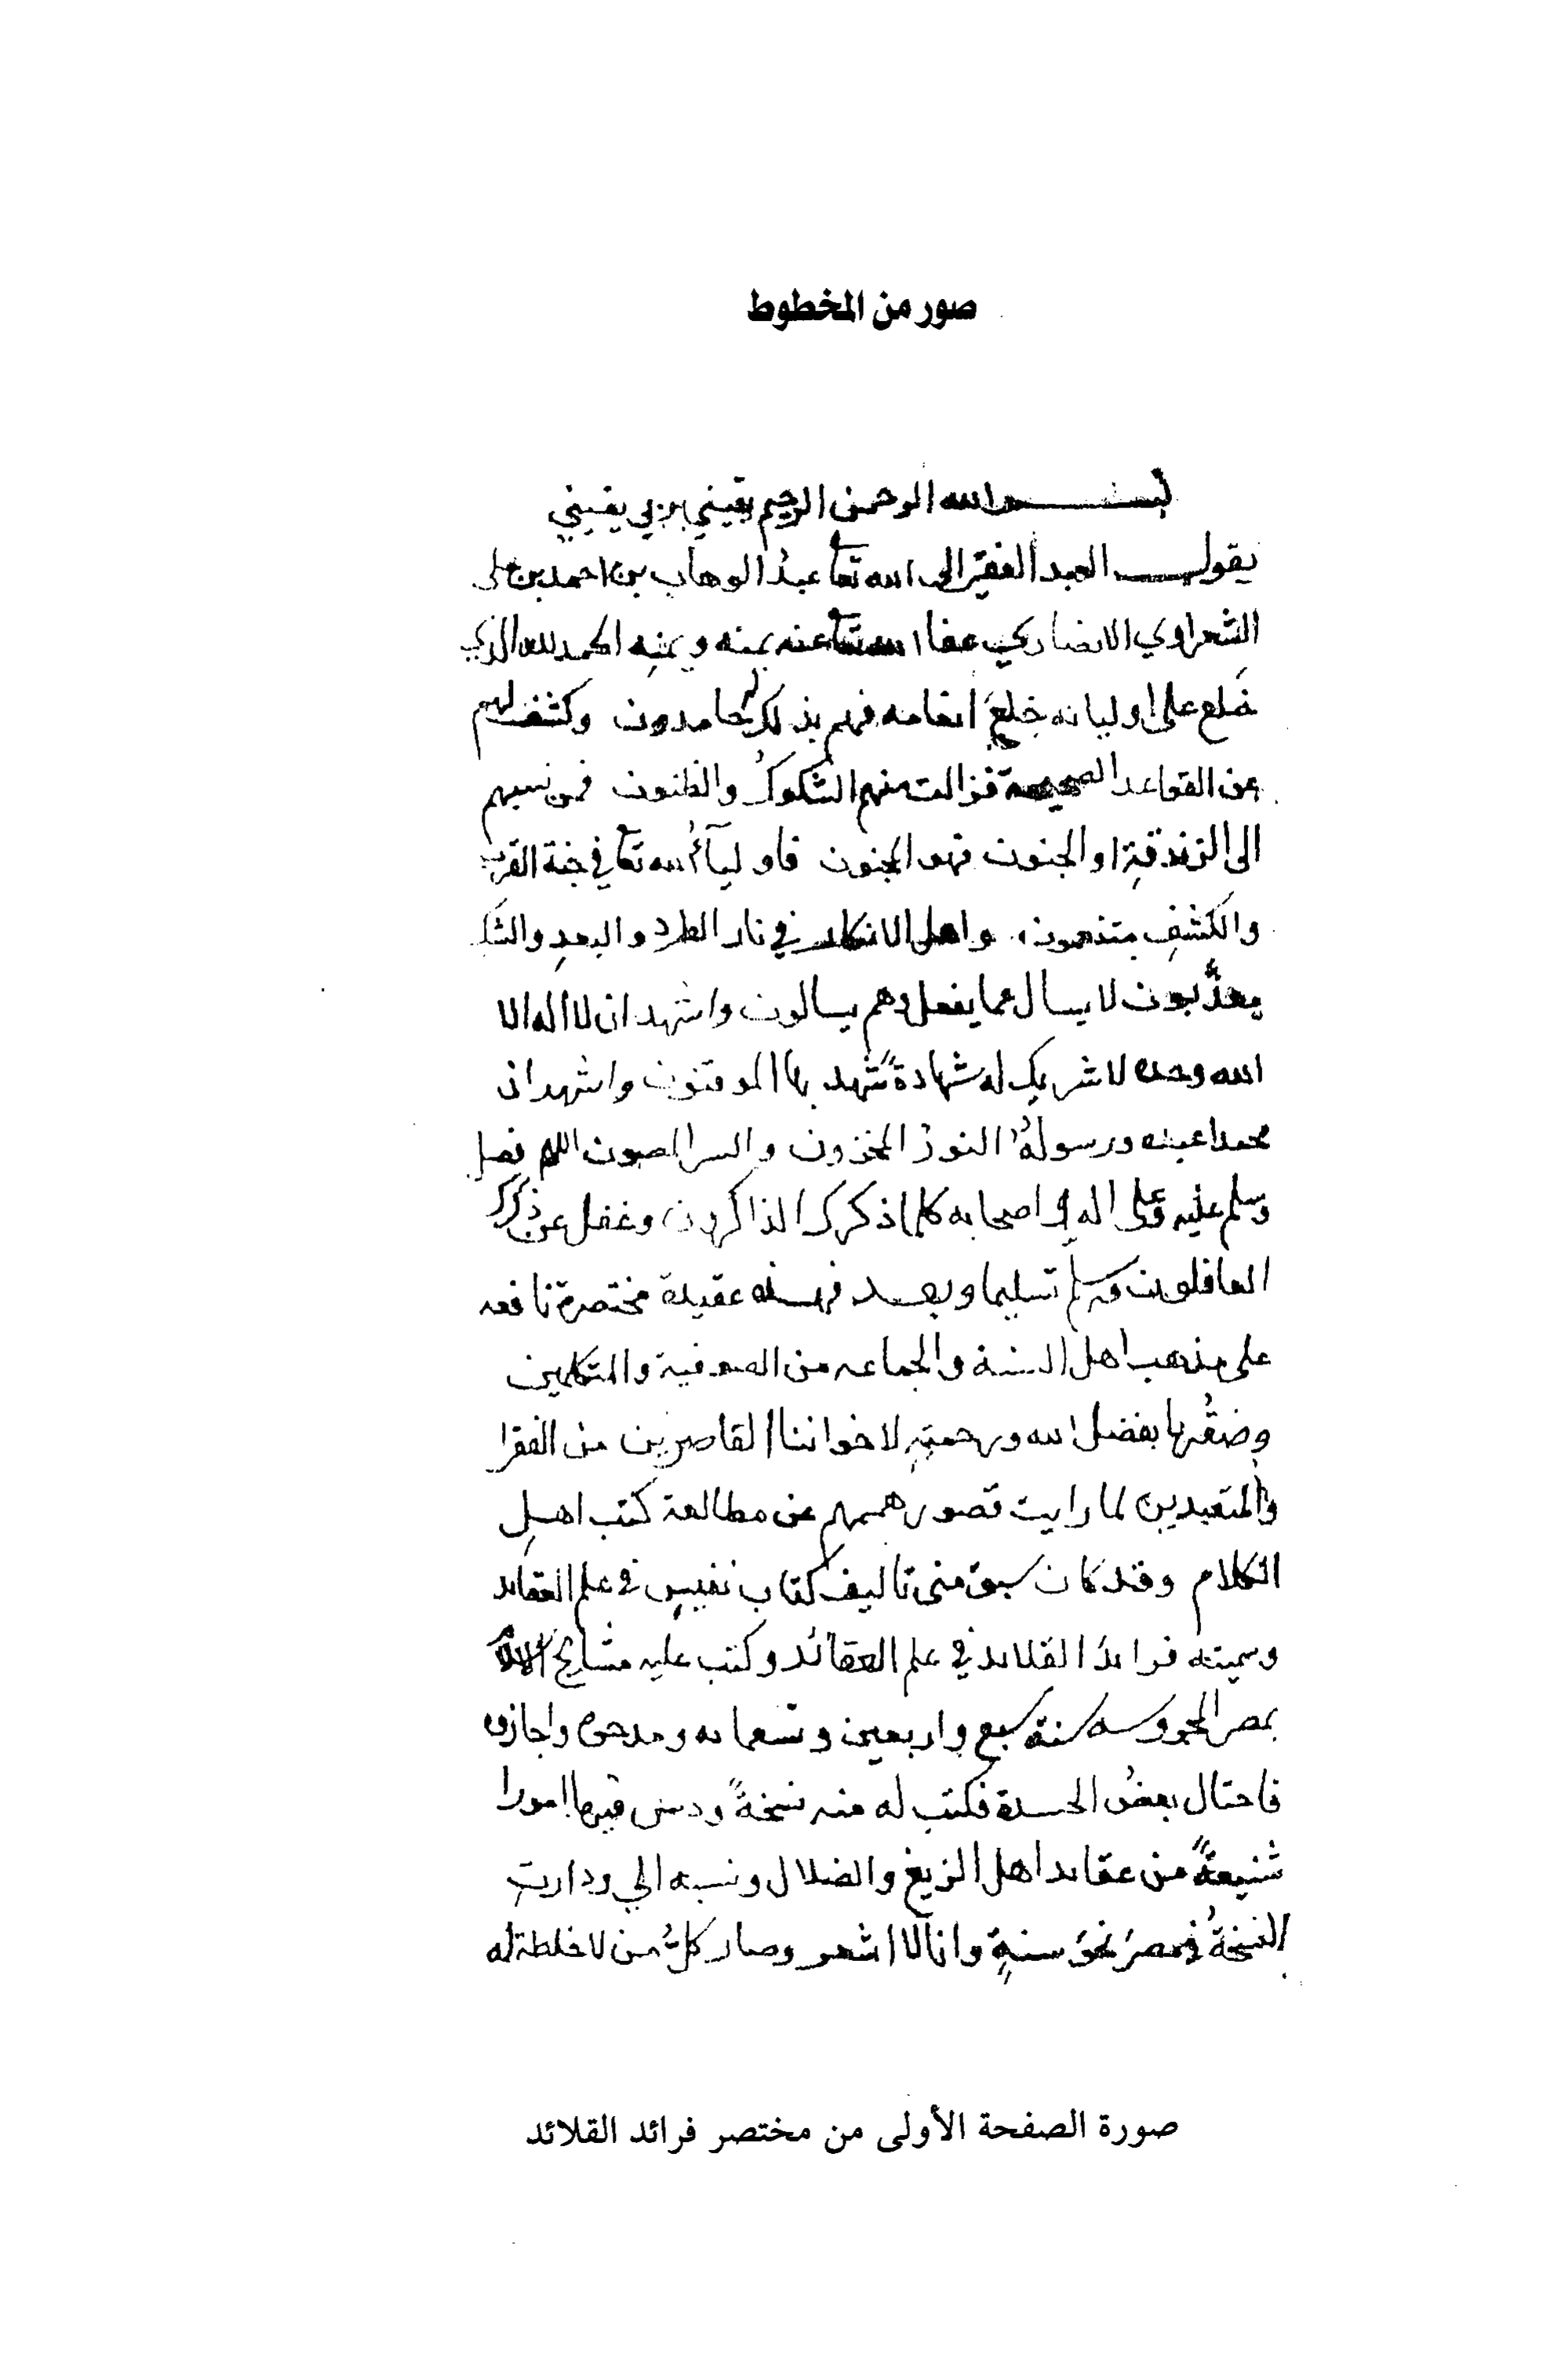 صور من المخطوط
بسم الله الرحمن الرحيم يقيني بربي يقيني
يقول العبد الفقير الى الله تعا عبدُ الوهاب بن احمد بن على
الشعراوي الانصاري عفا الله تعا عنه بمنه ويمنِه الحمد لله الذي
خَلع على اوليائه خِلعَ انعامه فهم بذلك له حامدون وكشف لهم
عن القواعد الصحيحة فزالت منهم الشكوكُ والظنون فمن نسبهم
الى الزندقةِ او الجنون فهو المجنون فاوليآءُ الله تعا في جنة القرب
والكشفِ متنعمون، واهل الانكار في نار الطرد والبعدِ والشك
معذَّبون لا يسال عما يفعل وهم يسالون واشهد ان لا اله الا
الله وحده لا شريك له شهادةً شهد بها الموقنون واشهد ان
محمدا عبده ورسولهُ النورُ المخزون والسر المصون اللهم فصل
وسلم عليه وعلى اله واصحابه كلما ذكرك الذاكرون وغفل عن ذكرك
الغافلون وسلم تسليما وبعد فهذه عقيدة مختصرة نافعه
على مذهب اهل السنة والجماعه من الصوفية والمتكلمين
وضعْتُها بفضل الله ورحمتِه لاخواننا القاصرين من الفقرا
والمتعبدين لما رايت قصور هممهم عن مطالعة كتب اهلِ
الكلام وقد كان سبق منى تاليف كتاب نفيسٍ في علم العقايد
وسميته فرايدُ القلايد في علم العقائد وكتب عليه مشايخ الاسلام
بمصر المحروسه سنة سبع واربعين وتسعمايه ومدحوه واجازوه
فاحتال بعضُ الحسدة فكتب له منه نسخةً ودس فيها امورا
شنيعةً من عقايد اهل الزيغ والضلال ونسبه الي ودارتِ
النسخةُ في مصرَ نحوَ سنةٍ وانا لا اشعر وصار كلُّ من لا خلطة له
صورة الصفحة الأولى من مختصر فرائد القلائد